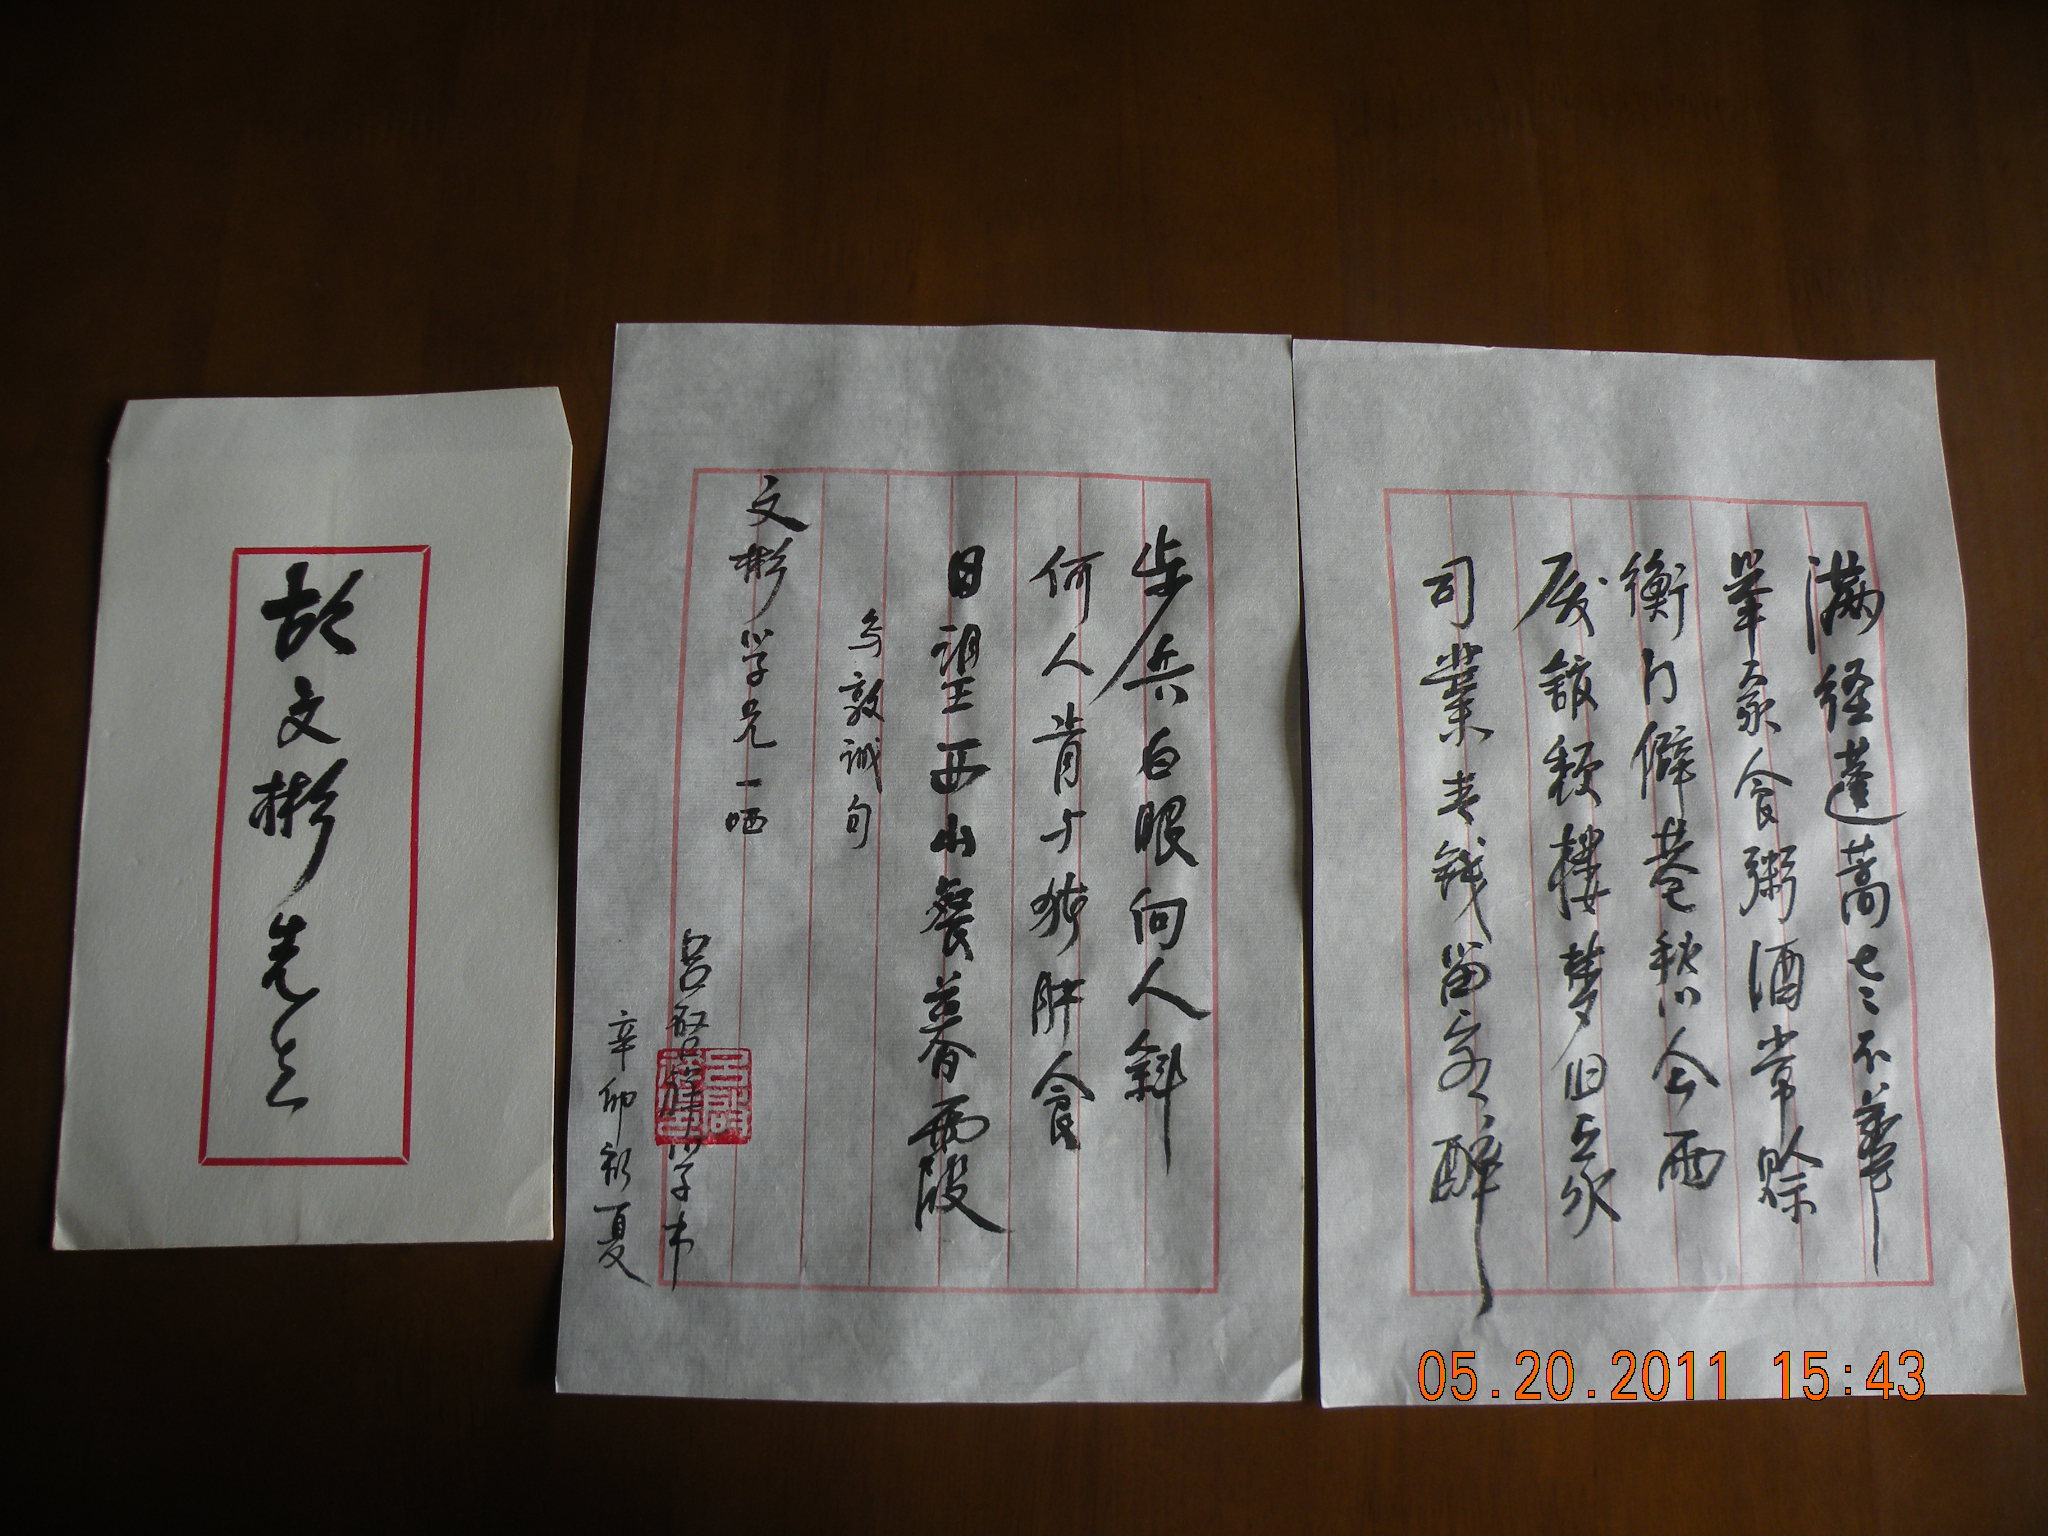 满径蓬蒿老不華
举家食粥酒常赊
衡门僻巷愁今雨
废館颓楼梦旧家
司業青钱留客醉
步兵白眼向人斜
何人肯与猪肝食
日望西山餐暮霞
写敦诚句
文彬学兄一哂
吕启祥学书
辛卯初夏
胡文彬先生
05.20.2011 15:43